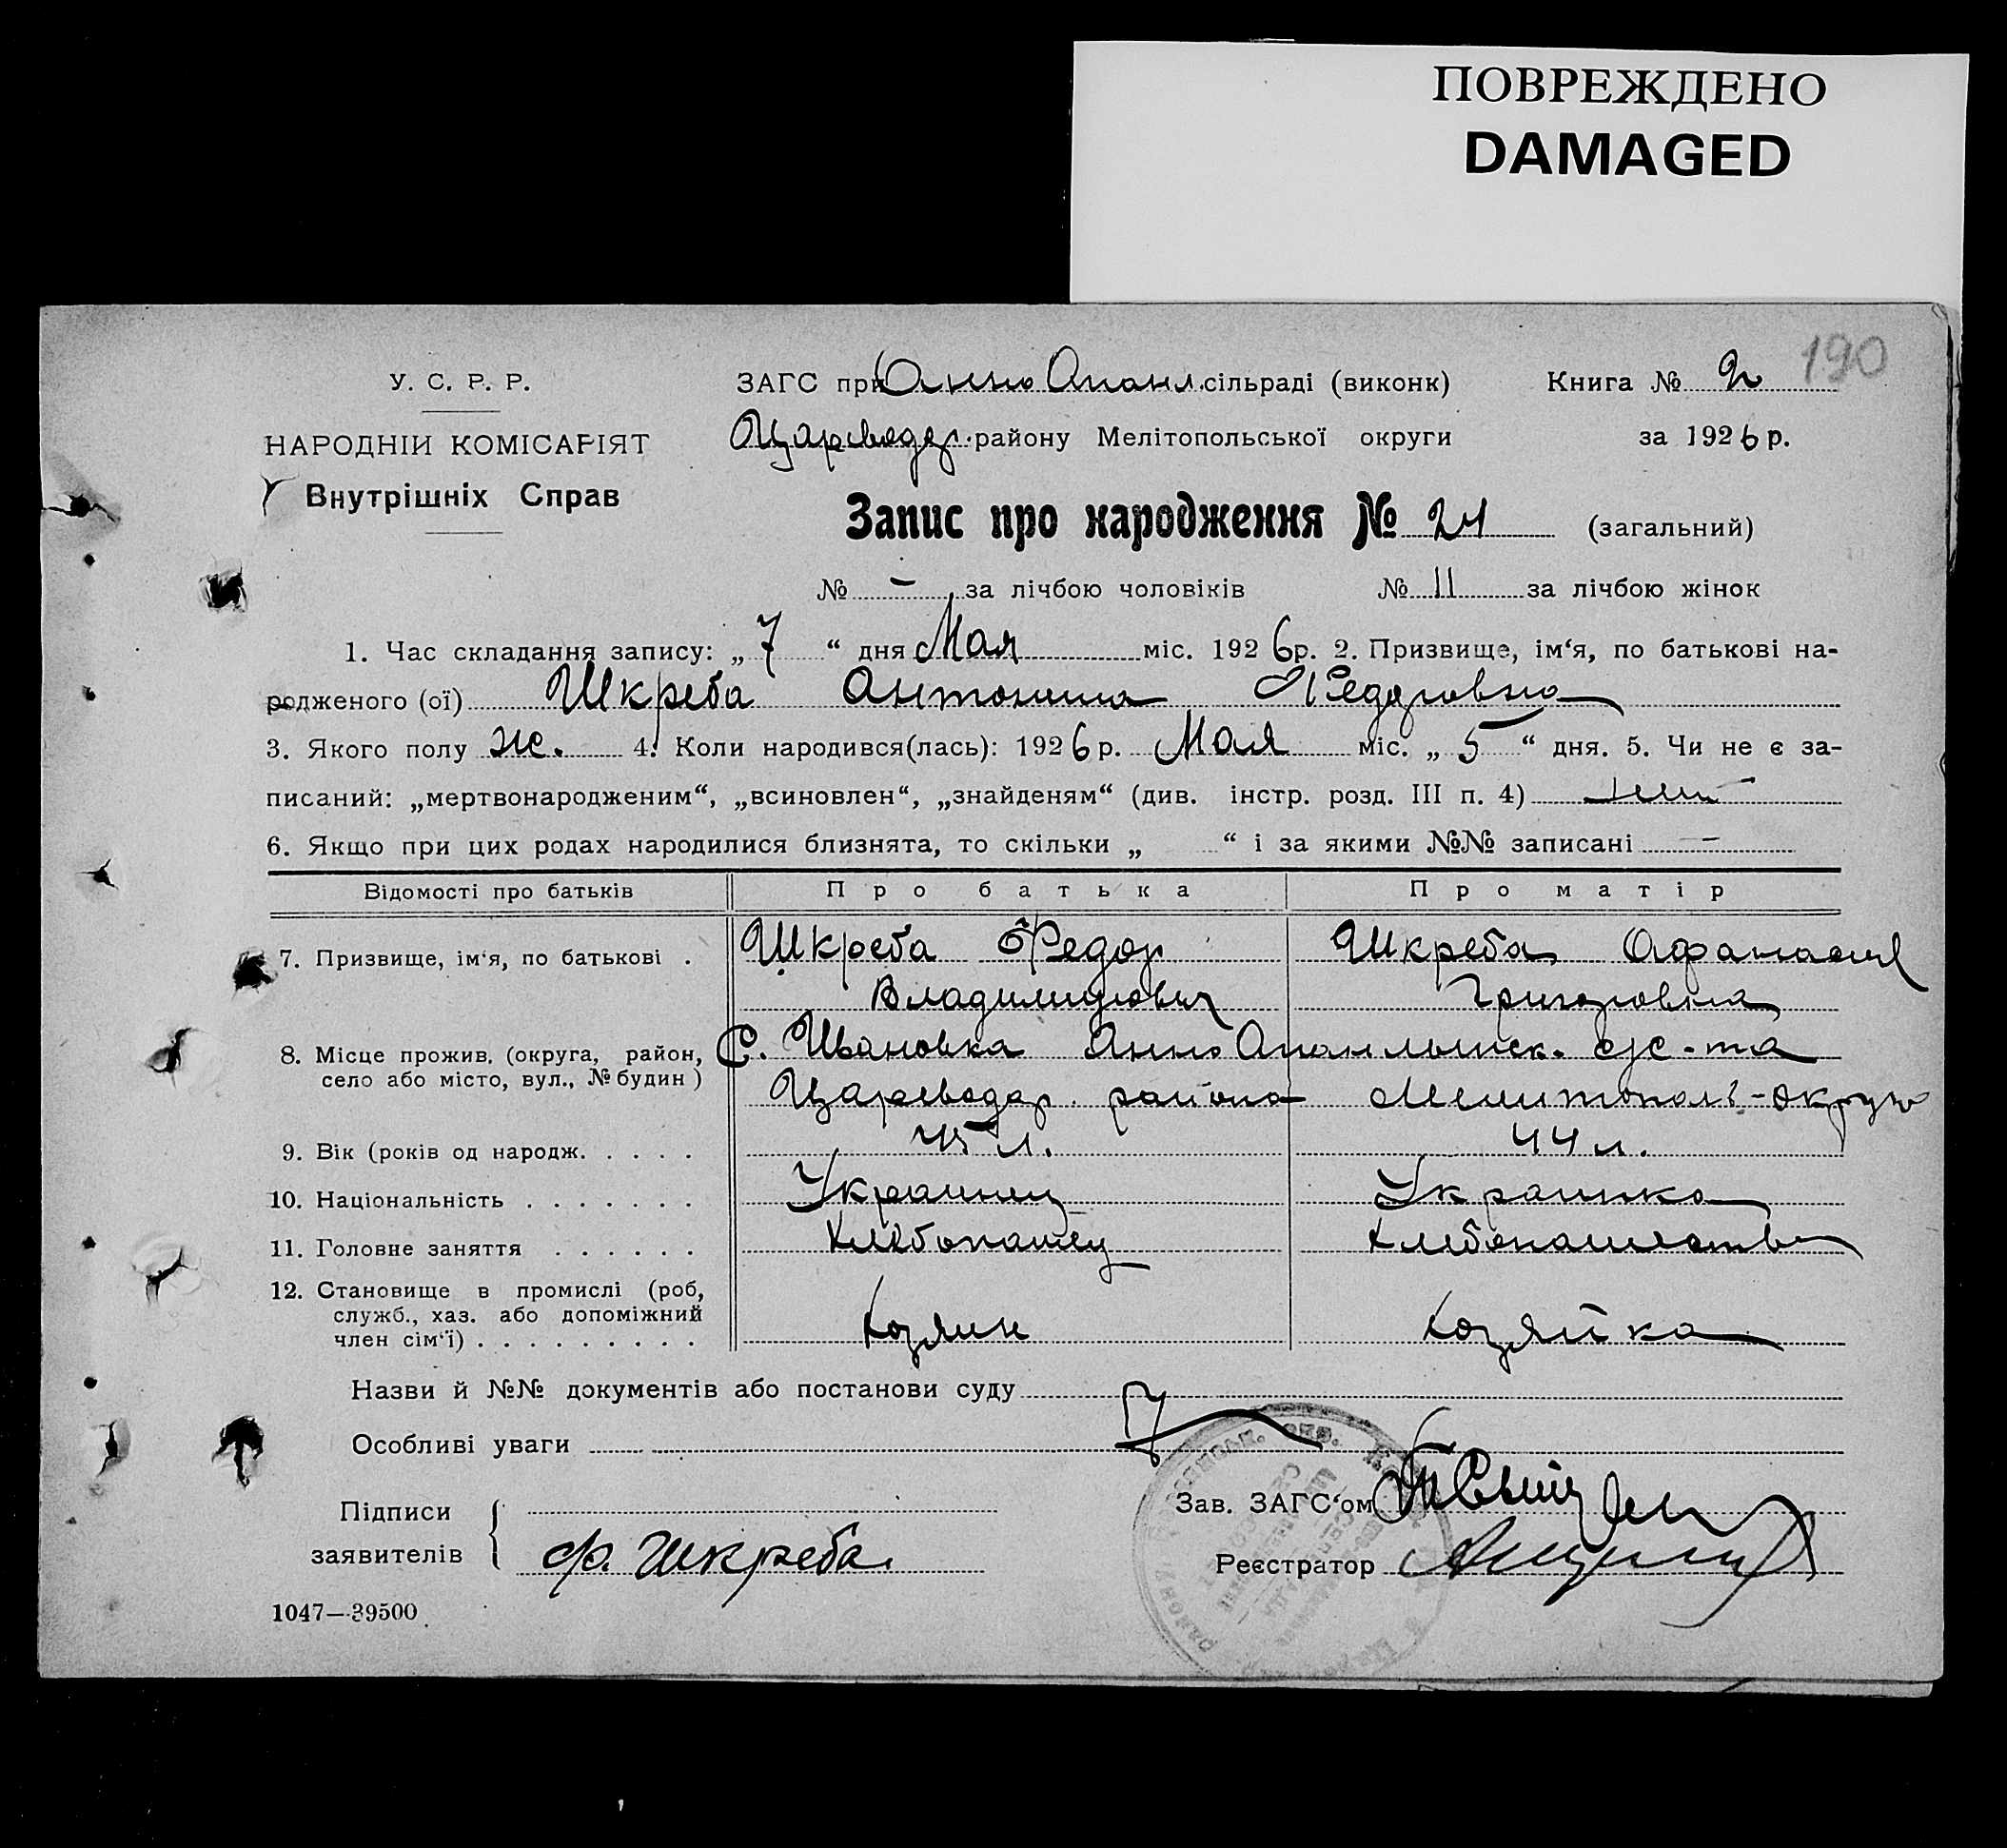 ПОВРЕЖДЕНО
DAMAGED
190
У. С. Р. Р.
НАРОДНІЙ КОМІСАРІЯТ
Внутрішніх Справ
ЗАГС при Анно Опанл. сільраді (виконк)
Книга № 2
Цареводар. району Мелітопольської округи
за 1926 р.
Запис про народження № 21 (загальний)
№ – за лічбою чоловіків № 11 за лічбою жінок
1. Час складання запису: „ 7 “ дня Мая міс. 1926 р. 2. Призвище, ім‘я, по батькові на-
родженого (ої) Шкреба Антонина Федоровна
3. Якого полу же. 4. Коли народився(лась): 1926 р. Мая міс. „ 5 “ дня. 5. Чи не є за-
писаний: „мертвонародженим“, „всиновлен“, „знайденям“ (див. інстр. розд. III п. 4) нет
6. Якщо при цих родах народилися близнята, то скільки „ “ і за якими №№ записані –
Відомості про батьків Про батька Про матір
7. Призвище, ім‘я, по батькові . Шкреба Федор Шкреба Афанасия
Владимирович Григоровна
8. Місце прожив. (округа, район, С. Ивановка Анно Опанлынск. с/с-та
село або місто, вул., № будин) Цареводар. района Мелитополь-округи
9. Вік (років од народж. . . . . 45 л. 44 л.
10. Національність . . . . . . . Украинец Украинка
11. Головне заняття . . . . . . Хлебопашец Хлебопашество
12. Становище в промислі (роб,
служб., хаз. або допоміжний
член сім‘ї) . . . . . . . . . Хозяин Хозяйка
Назви й №№ документів або постанови суду
Особливі уваги
Підписи
заявителів
Ф. Шкреба
Зав. ЗАГС‘ом
Реєстратор
1047—39500